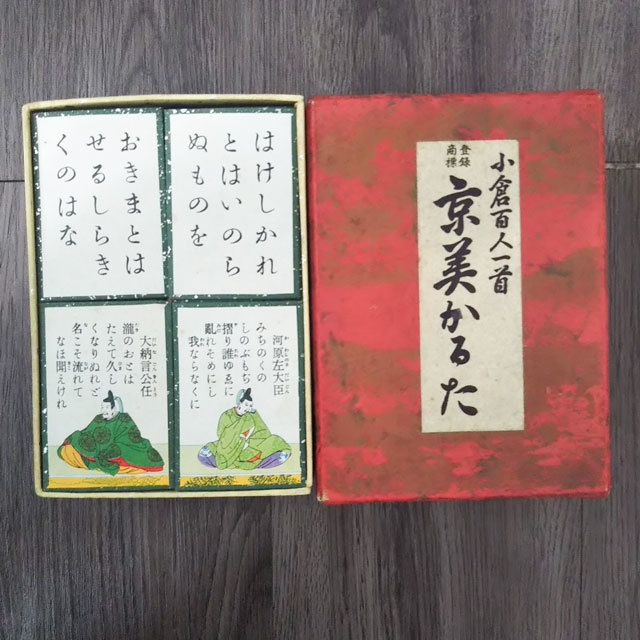 はけしかれ
とはいのら
ぬものを
おきまとは
せるしらき
くのはな
河原左大臣
みちのくの
しのぶもぢ
摺り誰ゆゑに
亂れそめにし
我ならなくに
大納言公任
瀧のおとは
たえて久し
くなりぬれど
名こそ流れて
なほ聞えけれ
小倉百人一首
登録
商標
京美かるた